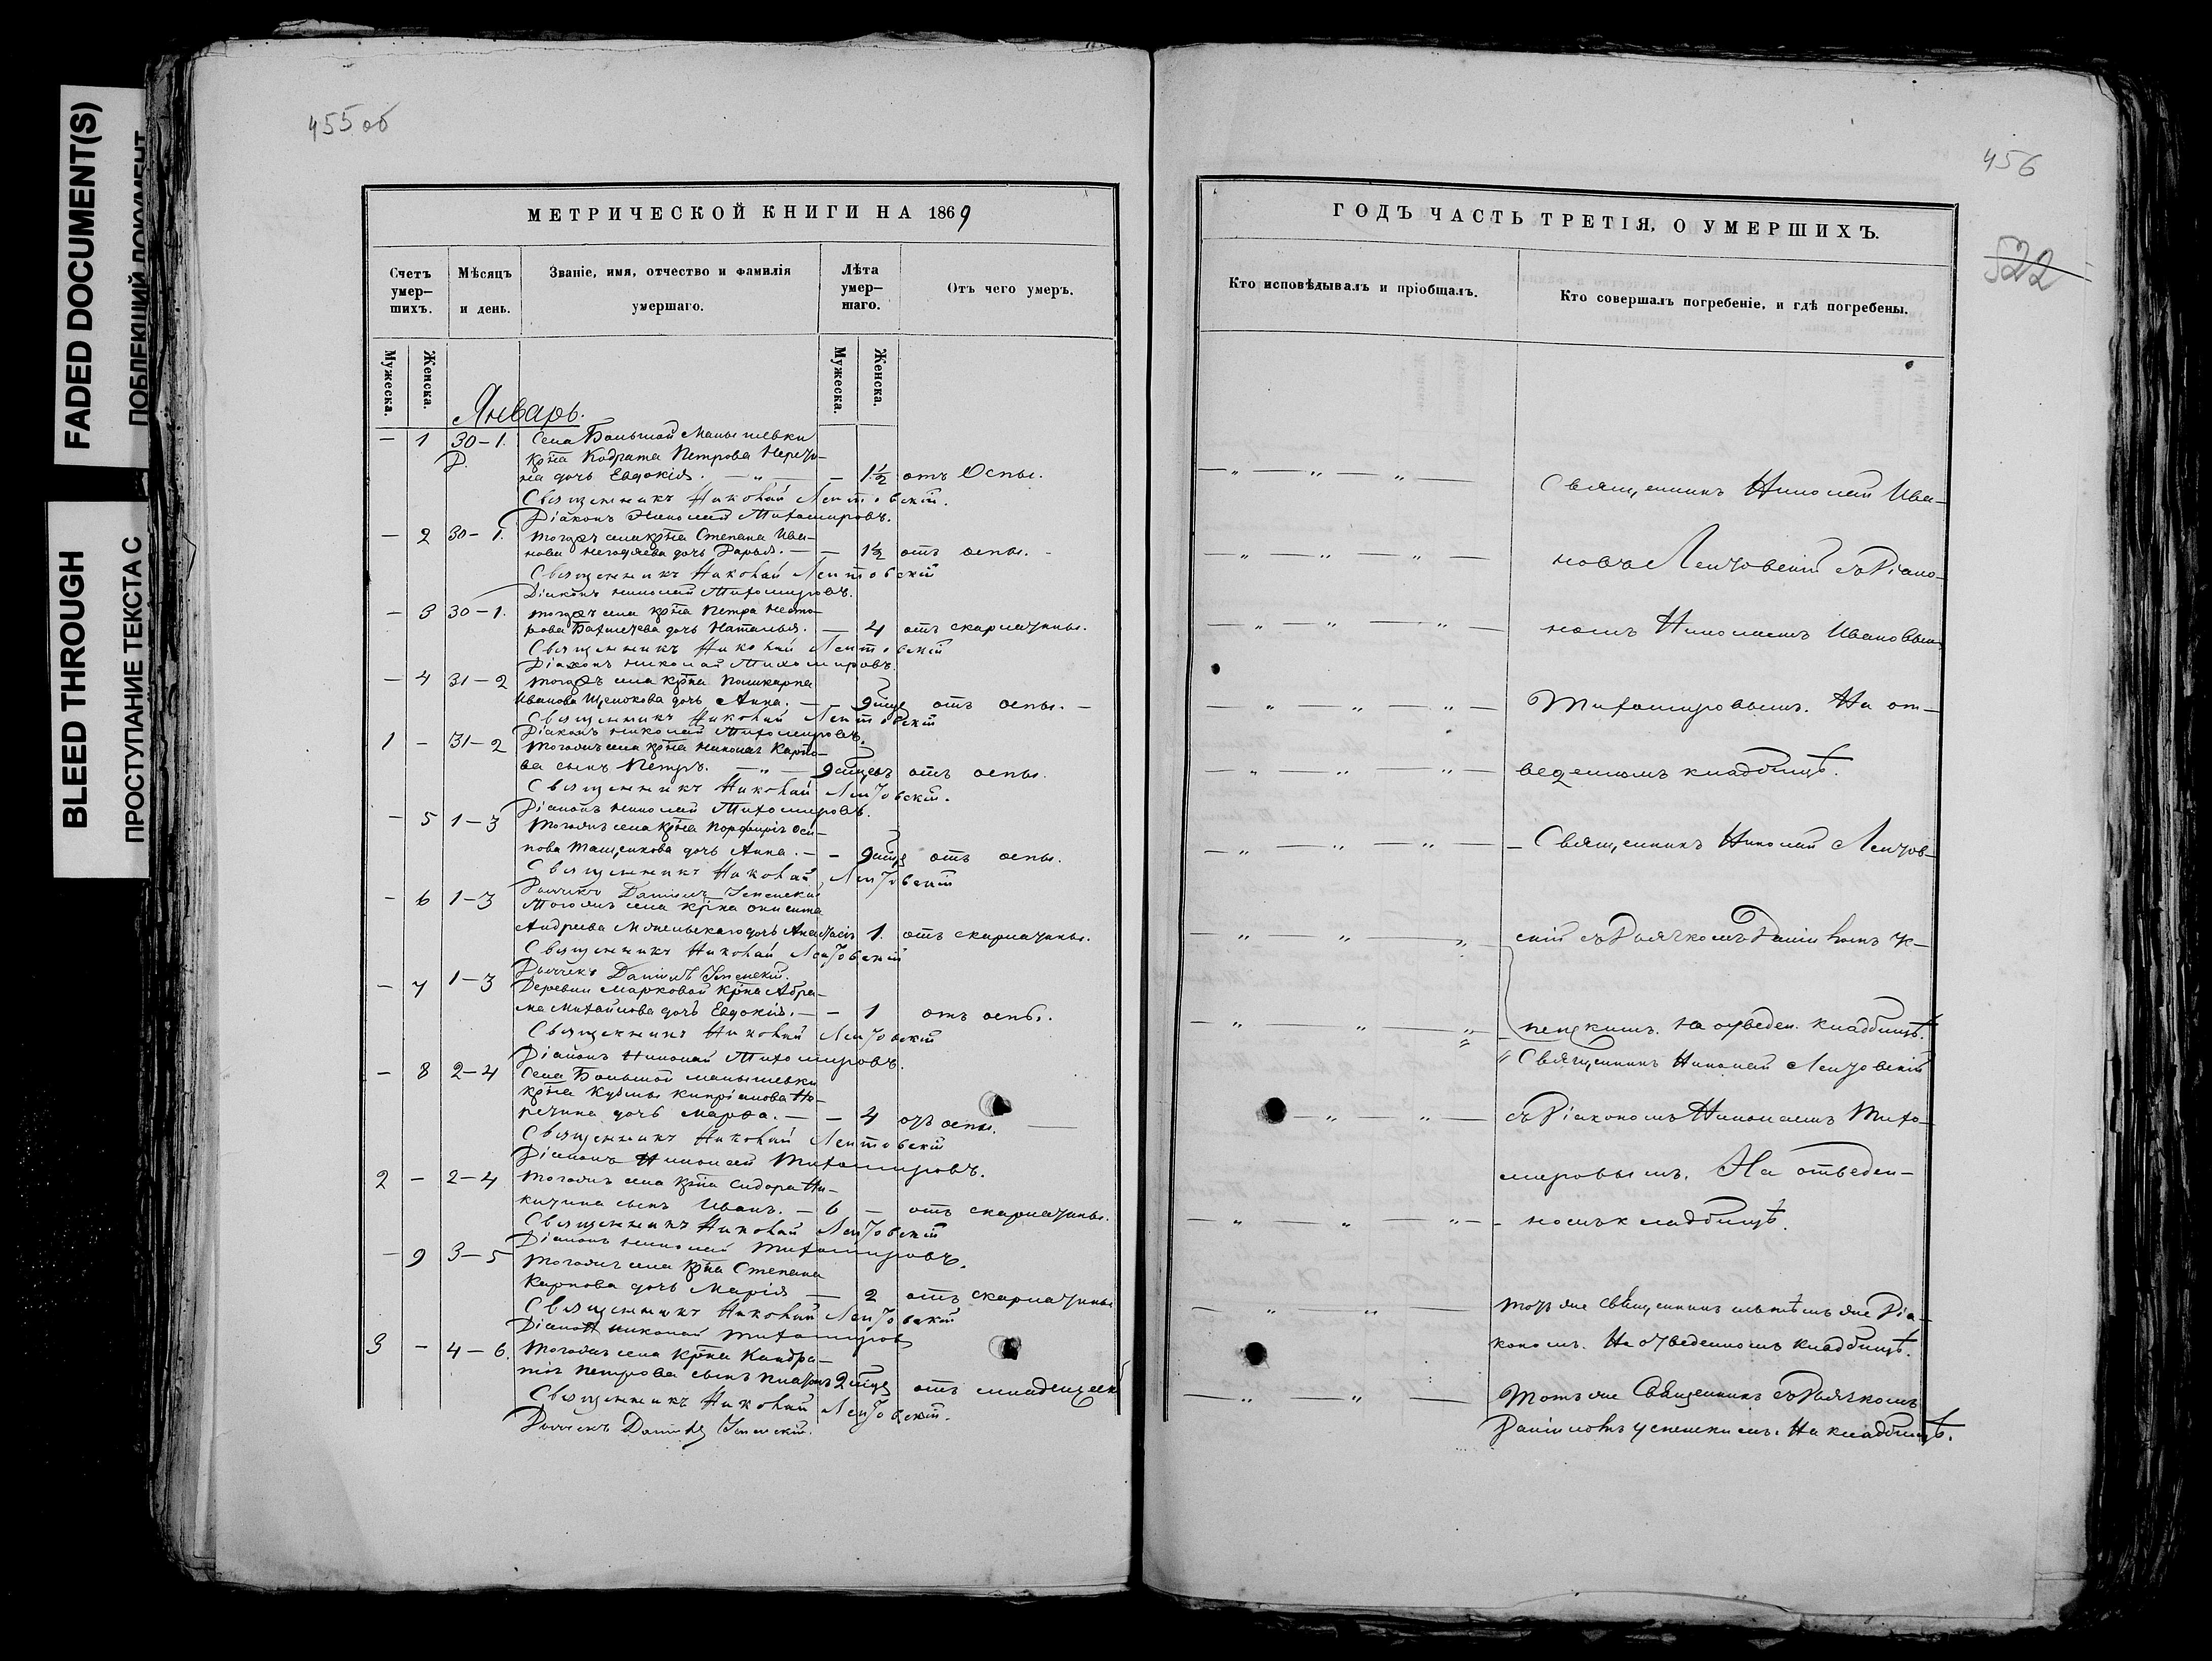 FADED DOCUMENT(S)
ПОБЛЕКШИЙ ДОКУМЕНТ
BLEED THROUGH
ПРОСТУПАНИЕ ТЕКСТА С
455 об
МЕТРИЧЕСКОЙ КНИГИ НА 1869
Счетъ умер– шихъ.
Мѣсяцъ и день.
Званіе, имя, отчество и фамилія умершаго.
Лѣта умер– шаго.
Отъ чего умеръ.
Мужеска. Женска. Мужеска. Женска.
Январь.
— 1 30–1. Села Большой Малышевки
крна Кодрата Петрова
на дочь Евдокія. — „ — — 1½ отъ Оспы.
Священникъ Николай Лентовскій.
Діаконъ Николай Тихомировъ.
— 2 30–1. тогожъ села крна Степана Ива–
нова Негодяева дочь Дарья. — — 1½ отъ оспы. -
Священникъ Николай Лентовскій
Діаконъ Николай Тихомировъ.
— 3 30–1. тогожъ села крна Петра
дочь Наталья. — 4 отъ скарлатины.
Священникъ Николай Лентовскій
Діаконъ Николай Тихомировъ.
— 4 31–2 тогожъ села крна
Иванова Щенокова дочь Анна. — отъ оспы. –
Священникъ Николай Лентовскій
Діаконъ Николай Тихомировъ.
1 – 31–2 Тогожъ села крна Николая Карпо–
ва сынъ Петръ. — „ — отъ оспы.
Священникъ Николай Лентовскій.
Діаконъ Николай Тихомировъ.
– 5 1–3 Тогожъ села крна Порфирія Оси–
пова дочь Анна. — – отъ оспы.
Священникъ Николай Лентовскій
Дьячекъ Даніилъ Успенскій
– 6 1–3 Тогожъ села крна
Андреева дочь 1. отъ скарлатины.
Священникъ Николай Лентовскій
Дьячекъ Даніилъ Успенскій.
– 7 1–3 Деревни Марковой крна Абра–
ма Михайлова дочь Евдокія. — – 1 отъ оспы.
Священникъ Николай Лентовскій
Діаконъ Николай Тихомировъ.
– 8 2–4 Села Большой Малышевки
крна Кузьмы Кипріянова
дочь Марѳа. — – 4 отъ оспы. —
Священникъ Николай Лентовскій
Діаконъ Николай Тихомировъ.
2 – 2–4 Тогожъ села крна Сидора Ни–
китина сынъ Иванъ. — 6 – отъ скарлатины.
Священникъ Николай Лентовскій
Діаконъ Николай Тихомировъ.
– 9 3–5 Тогожъ села крна Степана
Карпова дочь Марія — 2 отъ скарлатины
Священникъ Николай Лентовскій
Діаконъ Николай Тихомировъ
3 – 4–6. Тогожъ села крна Кандра–
тія Петрова сынъ отъ
Священникъ Николай Лентовскій.
Дьячекъ Даніилъ Успенскій.
456
522
ГОДЪ ЧАСТЬ ТРЕТІЯ, О УМЕРШИХЪ.
Кто исповѣдывалъ и пріобщалъ.
Кто совершалъ погребеніе, и гдѣ погребены.
Священникъ Николай Ива–
новъ Лентовскій съ Діако–
номъ Николаемъ Ивановым
Тихомировымъ. На от–
веденномъ кладбищѣ.
– Священникъ Николай Лентов–
скій съ Дьячкомъ Даніиломъ У–
пенскимъ. на отведен. кладбищѣ.
Священникъ Николай Лентовскій
съ Діакономъ Николаемъ Тихо–
мировымъ. На отведен–
– номъ кладбищѣ.
тотъ же священникъ съ тѣмъ же Діа–
кономъ. На отведенномъ кладбищѣ.
Тотъ же Священникъ съ Дьячкомъ
Даніиломъ Успенскимъ. На кладбищѣ.